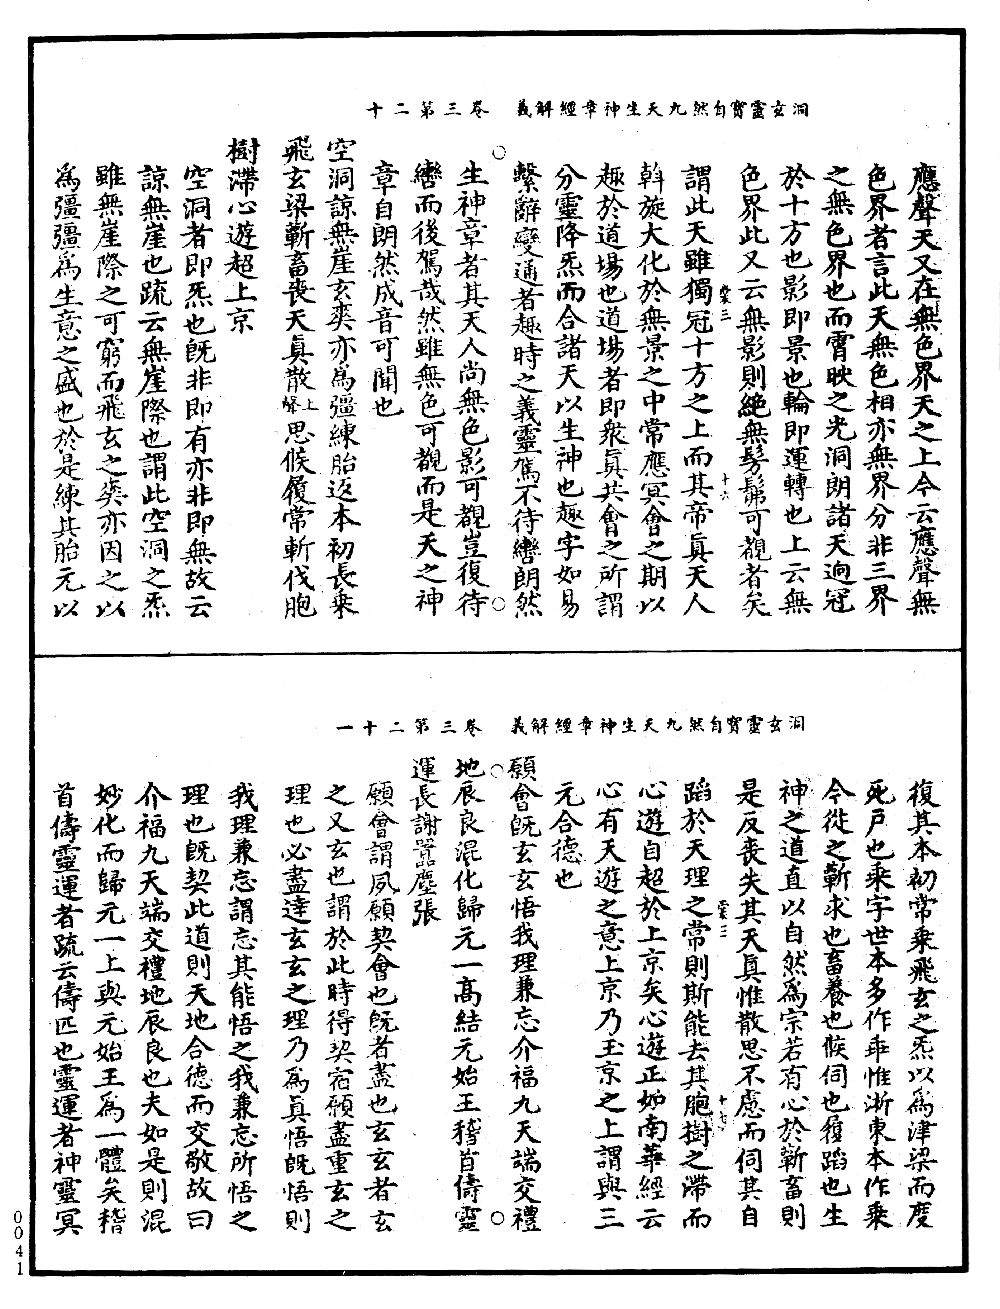 洞玄靈寳自然九天生神章經解義　卷三第二十
應聲天又在無色界天之上今云應聲無
色界者言此天無色相亦無界分非三界
之無色界也而霄映之光洞朗諸天逈冠
於十方也影即景也輪即運轉也上云無
色界此又云無影則絶無髣髴可覩者矣
謂此天雖獨冠十方之上而其帝眞天人
斡旋大化於無景之中常應冥會之期以
趣於道場也道場者即衆眞共會之所謂
分靈降炁而合諸天以生神也趣字如易
繫辭變通者趣時之義靈駕不待轡朗然
生神章者其天人尚無色影可覩豈復待
轡而後駕哉然雖無色可覩而是天之神
章自朗然成音可聞也
空洞諒無崖玄奕亦爲彊練胎返本初長乗
飛玄梁蘄畜喪天眞散上聲思候履常斬伐胞
樹滯心遊超上京
空洞者即炁也旣非即有亦非即無故云
諒無崖也疏云無崖際也謂此空洞之炁
雖無崖際之可窮而飛玄之奕亦因之以
爲彊彊爲生意之盛也於是練其胎元以
洞玄靈寳自然九天生神章經解義　卷三第二十一
復其本初常乗飛玄之炁以爲津梁而度
死戸也乗字世本多作乖惟浙東本作乗
今從之蘄求也畜養也候伺也履蹈也生
神之道直以自然爲宗若有心於蘄畜則
是反喪失其天眞惟散思不慮而伺其自
蹈於天理之常則斯能去其胞樹之滯而
心遊自超於上京矣心遊正如南華經云
心有天遊之意上京乃玉京之上謂與三
元合德也
願會旣玄玄悟我理兼忘介福九天端交禮
地辰良混化歸元一高結元始王稽首儔靈
運長謝囂塵張
願會謂夙願契會也旣者盡也玄玄者玄
之又玄也謂於此時得契宿願盡重玄之
理也必盡達玄玄之理乃爲眞悟旣悟則
我理兼忘謂忘其能悟之我兼忘所悟之
理也旣契此道則天地合德而交敬故曰
介福九天端交禮地辰良也夫如是則混
妙化而歸元一上與元始王爲一體矣稽
首儔靈運者疏云儔匹也靈運者神靈冥
0041